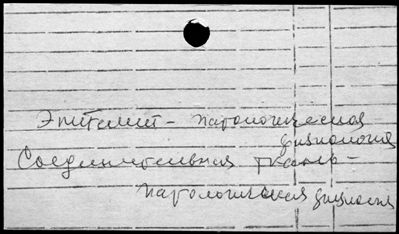 Эпителий - патологическая
физиология
Соединительная ткань -
патологическая физиология